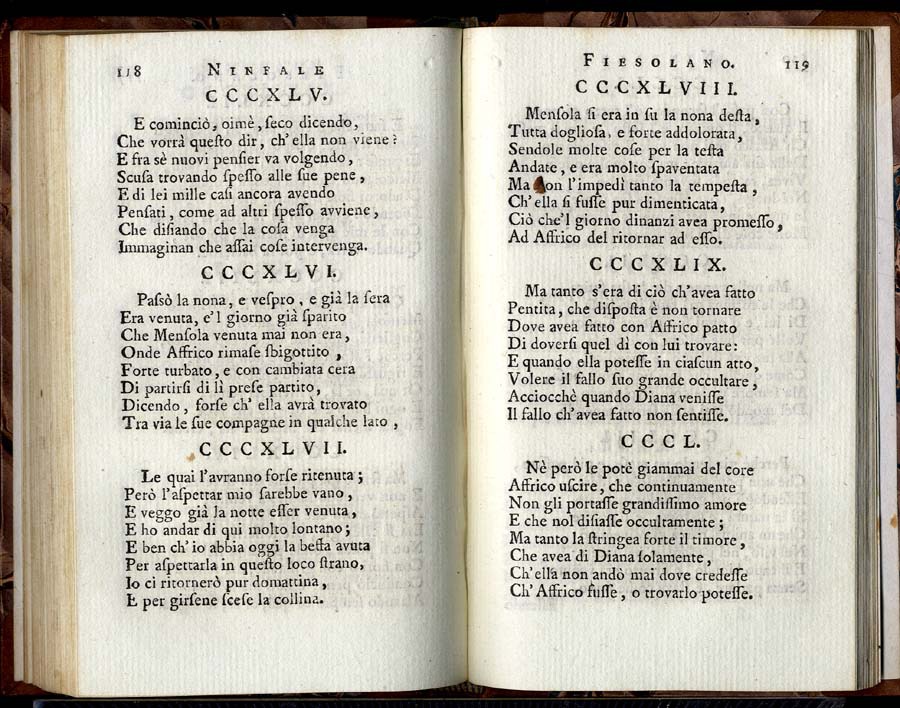 118 NINFALE
CCCXLV.
E cominciò, oimè, ſeco dicendo,
Che vorrà queſto dir, ch' ella non viene?
E fra sè nuovi penſier va volgendo,
Scuſa trovando ſpeſſo alle ſue pene,
E di lei mille caſi ancora avendo
Penſati, come ad altri ſpeſſo avviene,
Che diſiando che la coſa venga
Immaginan che aſſai coſe intervenga.
CCCXLVI.
Paſsò la nona, e veſpro, e già la ſera
Era venuta, e'l giorno già ſparito
Che Menſola venuta mai non era,
Onde Affrico rimaſe ſbigottito,
Forte turbato, e con cambiata cera
Di partirſi di lì preſe partito,
Dicendo, forſe ch' ella avrà trovato
Tra via le ſue compagne in qualche lato,
CCCXLVII.
Le quai l'avranno forſe ritenuta;
Però l'aſpettar mio ſarebbe vano,
E veggo già la notte eſſer venuta,
E ho andar di qui molto lontano;
E ben ch' io abbia oggi la beffa avuta
Per aſpettarla in queſto loco ſtrano,
Io ci ritornerò pur domattina,
E per girſene ſceſe la collina.
FIESOLANO. 119
CCCXLVIII.
Menſola ſi era in ſu la nona deſta,
Tutta doglioſa, e forte addolorata,
Sendole molte coſe per la teſta
Andate, e era molto ſpaventata
Ma non l'impedì tanto la tempeſta,
Ch' ella ſi fuſſe pur dimenticata,
Ciò che'l giorno dinanzi avea promeſſo,
Ad Affrico del ritornar ad eſſo.
CCCXLIX.
Ma tanto s'era di ciò ch'avea fatto
Pentita, che diſpoſta è non tornare
Dove avea fatto con Affrico patto
Di doverſi quel dì con lui trovare:
E quando ella poteſſe in ciaſcun atto,
Volere il fallo ſuo grande occultare,
Acciocchè quando Diana veniſſe
Il fallo ch'avea fatto non ſentiſſe.
CCCL.
Nè però le potè giammai del core
Affrico uſcire, che continuamente
Non gli portaſſe grandiſſimo amore
E che nol diſiaſſe occultamente;
Ma tanto la ſtringea forte il timore,
Che avea di Diana ſolamente,
Ch' ella non andò mai dove credeſſe
Ch' Affrico fuſſe, o trovarlo poteſſe.